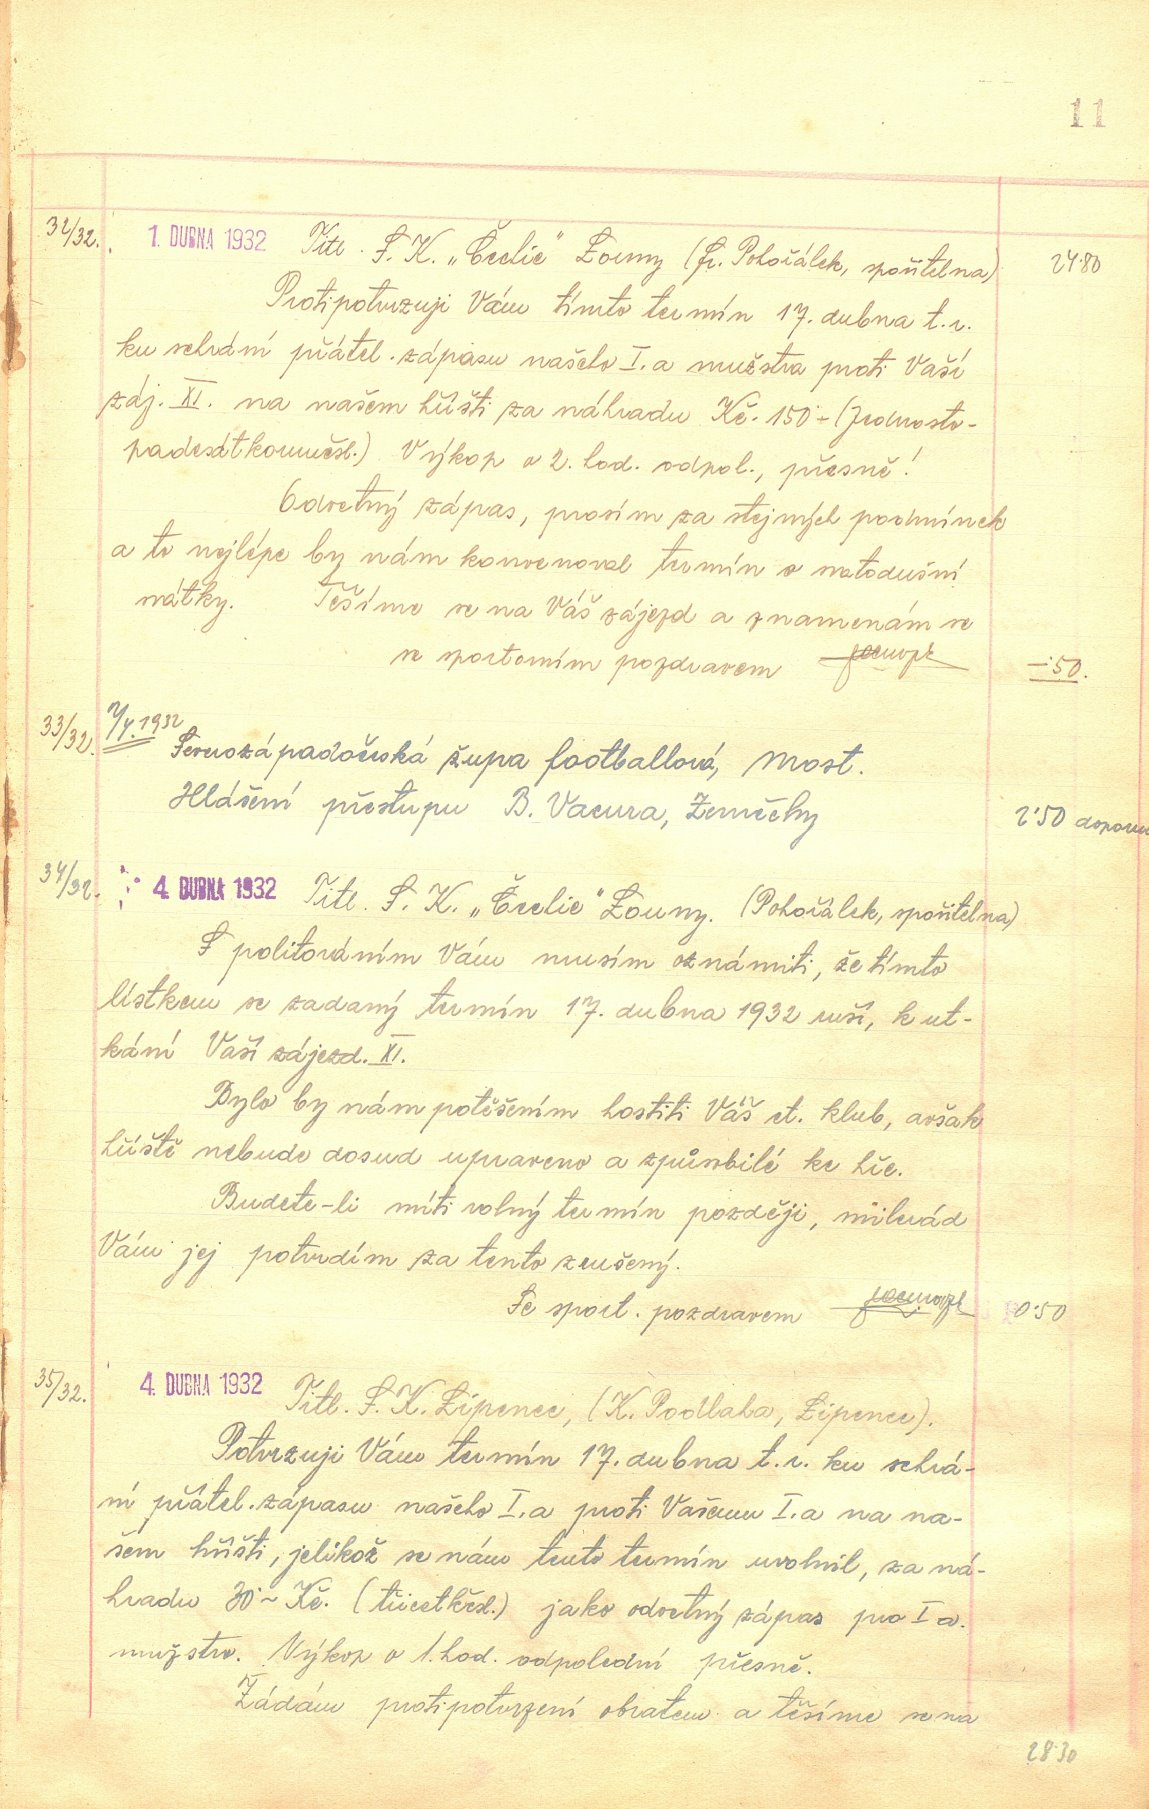 11
32/32. 1. DUBNA 1932 Titl. S. K. „Čechie" Louny (fr. Pohořálek, spořitelna) 24·80
Protipotvrzuji Vám tímto termín 17. dubna t. r.
ku sehrání přátel. zápasu našeho I. a mužstva proti Vaší
záj. XI. na našem hřišti za náhradu Kč. 150·- (Jednosto-
padesátkorunčsl.) Výkop o 2. hod. odpol., přesně!
Odvetný zápas, prosím za stejných podmínek
a to nejlépe by nám konvenoval termín o svatodušní
svátky. Těšíme se na Váš zájezd a znamenám se
se sportovním pozdravem
-·50.
33/32. 2/4. 1932
Severozápadočeská župa footballová, Most.
Hlášení přestupu B. Vacura, Zeměchy 2·50 doporuč
34/32. 4. DUBNA 1932 Titl. S. K. „Čechie" Louny. (Pohořálek, spořitelna)
S politováním Vám musím oznámiti, že tímto
lístkem se zadaný termín 17. dubna 1932 ruší, k ut-
kání Vaší zájezd. XI.
Bylo by nám potěšením hostiti Váš ct. klub, avšak
hřiště nebude dosud upraveno a způsobilé ke hře.
Budete-li míti volný termín později, milerád
Vám jej potvrdím za tento zrušený.
Se sport. pozdravem 0·50
35/32. 4. DUBNA 1932 Titl. S. K. Lipenec, (K. Podlaha, Lipenec).
Potvrzuji Vám termín 17. dubna t. r. ku sehrá-
ní přátel. zápasu našeho I. a proti Vašemu I. a na na-
šem hřišti, jelikož se nám tento termín uvolnil, za ná-
hradu 30·- Kč. (třicetkčsl.) jako odvetný zápas pro I a.
mužstvo. Výkop o 1. hod. odpolední přesně.
Žádám protipotvrzení obratem a těšíme se na
28·30